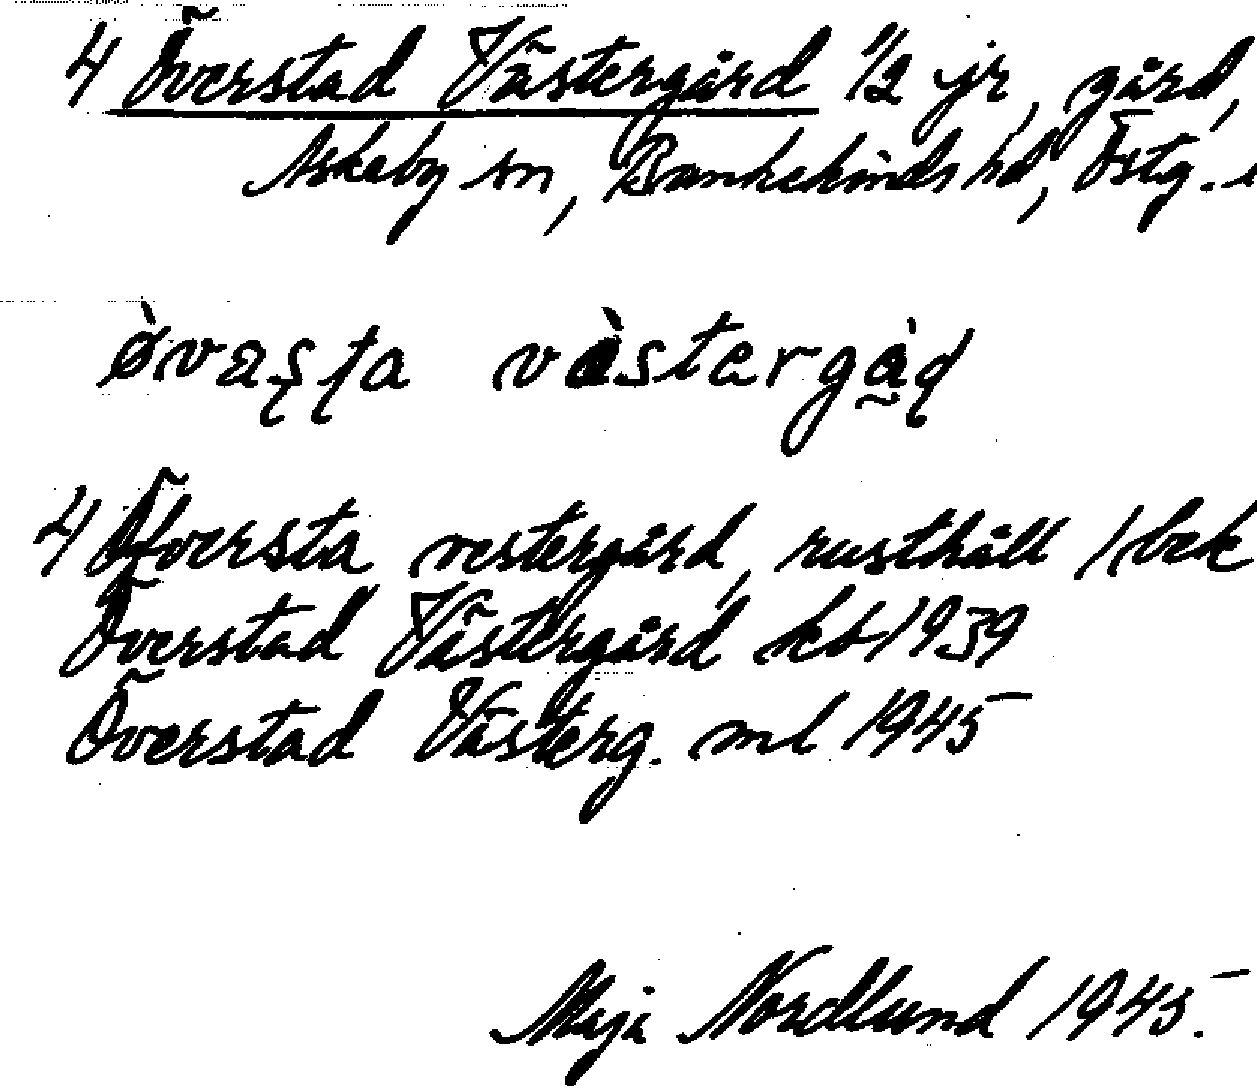 4 Överstad Västergård 1/2 jr, gård,
Askeby sn, Bankekinds hd, Östg.
øvaʂʈa västergåɖ
4 Öfversta vestergård, rusthåll 1 bek
Överstad Västergård kb 1939
Överstad Västerg. ml 1945
Maja Nordlund 1945.